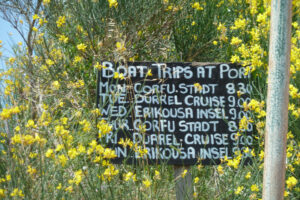 BOAT TRIPS AT POR
MON CORFU-STADT 8.30
TUE DURREL CRUISE 9.00
WED ERIKOUSA INSEL 9.00
CORFU STADT 8.30
FRI DURREL-CRUISE 9.00
ERIKOUSA INSEL 9.00